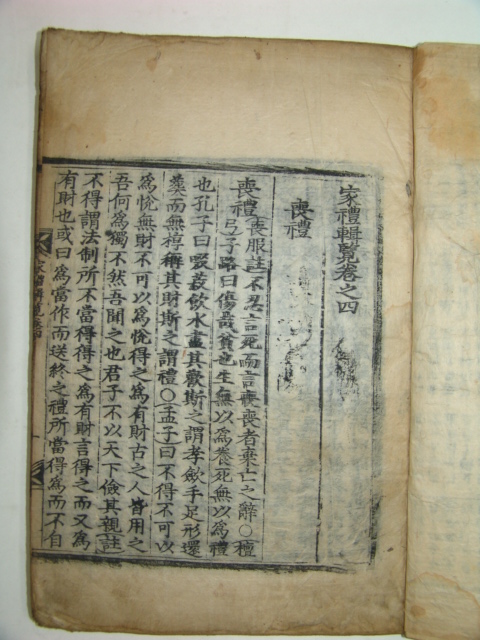 家禮輯覽卷之四
喪禮
喪禮喪服註不忍言死而言喪喪者棄亡之辭○檀
弓子路曰傷哉貧也生無以爲養死無以爲禮
也孔子曰啜菽飮水盡其歡斯之謂孝歛手足形還
葬而無槨稱其財斯之謂禮○孟子曰不得不可以
爲悅無財不可以爲悅得之爲有財古之人皆用之
吾何爲獨不然吾聞之也君子不以天下儉其親註
不得謂法制所不當得得之爲有財言得之而又爲
有財也或曰爲當作而送終之禮所當得爲而不自